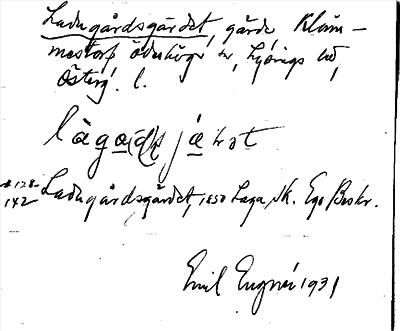 Ladugårdsgärdet, gärde Kläm-
mestorp Ödeshögs sn, Lysings hd,
Österg. l.
làga(ds)jàrət
# 128-
142
Ladugårdsgärdet, 1850 Laga sk. Ego Beskr.
Emil Engnér 1931